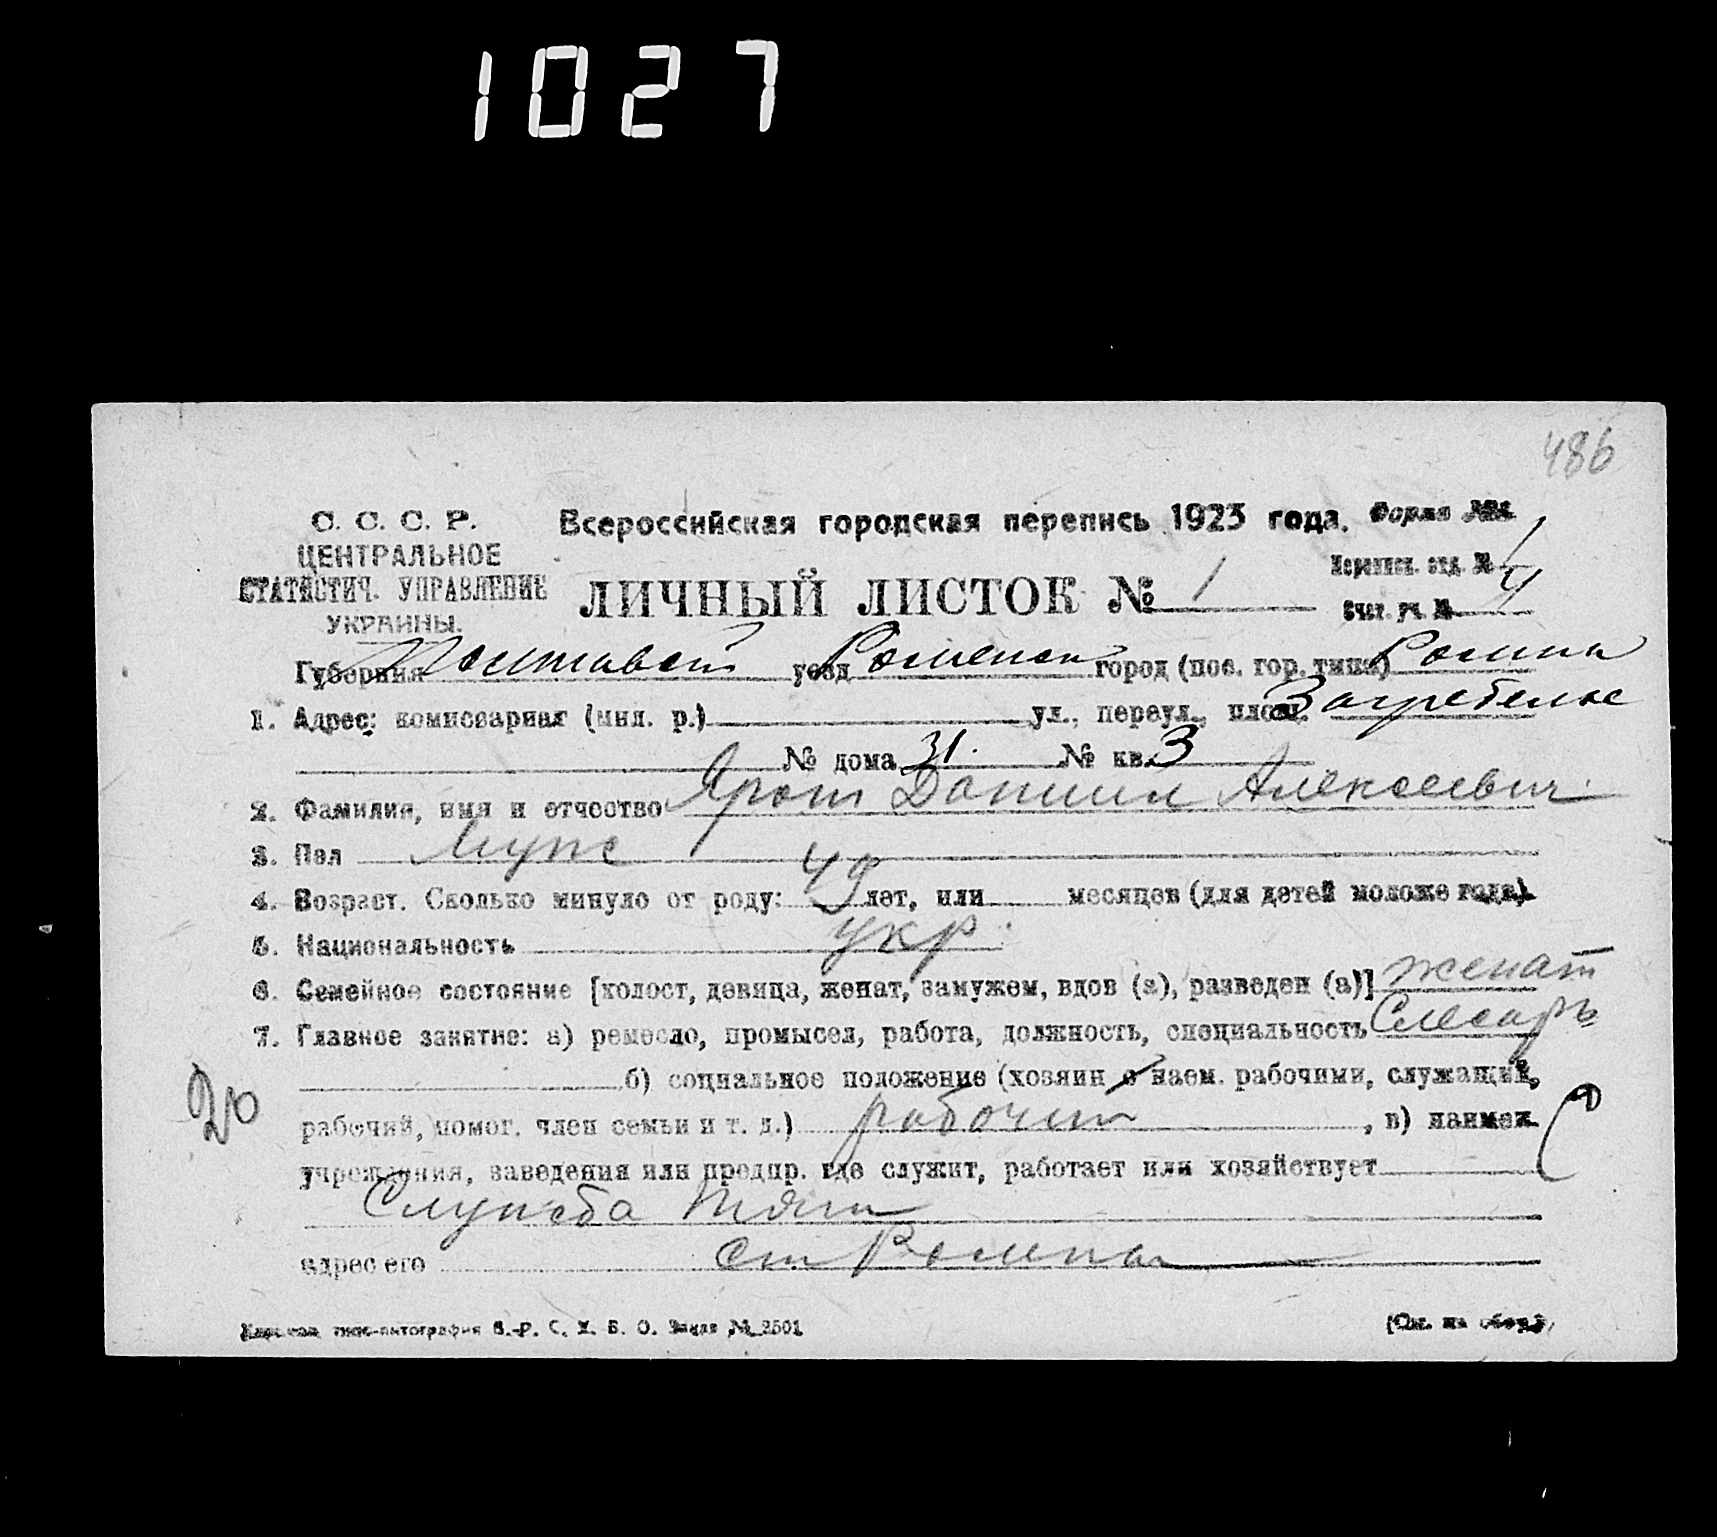 1027
486
С. С. С. Р.
ЦЕНТРАЛЬНОЕ
СТАТИСТИЧ. УПРАВЛЕНИЕ
УКРАИНЫ.
Всероссийская городская перепись 1923 года. Форма №
ЛИЧНЫЙ ЛИСТОК № 1
Переписн. отд. № 1
Счет. уч. № 4
Губерния Полтавск уезд Роменск город (пос. гор. типа) Ромны
1. Адрес: комиссариат (мил. р.) ул., переул., площ. Загребелье
№ дома 31. № кв. 3
2. Фамилия, имя и отчество Ярош Даниил Алексеевич
3. Пол Муж
4. Возраст. Сколько минуло от роду: 49 лет, или месяцев (для детей моложе года).
5. Национальность укр.
6. Семейное состояние [холост, девица, женат, замужем, вдов (а), разведен (а)] женат
7. Главное занятие: а) ремесло, промысел, работа, должность, специальность Слесарь
б) социальное положение (хозяин с наем. рабочими, служащий,
20
рабочий, помог. член семьи и т. д.) рабочий, в) наимен.
учреждения, заведения или предпр. где служит, работает или хозяйствует
Служба тяги
адрес его ст Ромны
типо-литография В.-Р. С. Х. Б. О. Заказ № 2501
(См. на обор.)